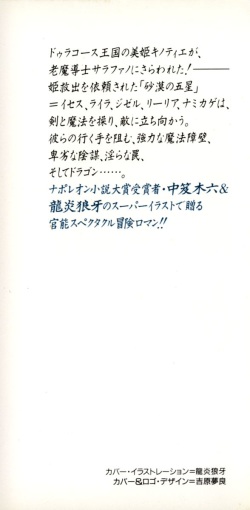 ドゥラコース王国の美姫キノティエが、
老魔導士サラファノにさらわれた!―――
姫救出を依頼された「砂漠の五星」
=イセス、ライラ、ジゼル、リーリア、ナミカゲは、
剣と魔法を操り、敵に立ち向かう。
彼らの行く手を阻む、強力な魔法障壁、
卑劣な陰謀、淫らな罠、
そしてドラゴン……。
ナポレオン小説大賞受賞者・中笈木六&
龍炎狼牙のスーパーイラストで贈る
官能スペクタクル冒険ロマン!!
カバー・イラストレーション=龍炎狼牙
カバー&ロゴ・デザイン=吉原夢良